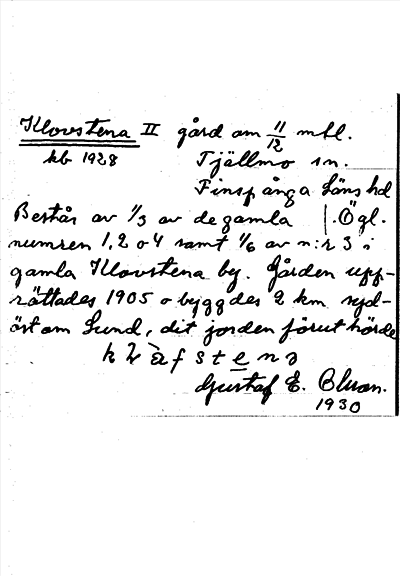 Klovstena II gård om 11/12 mtl.
kb 1928 Tjällmo sn.
Finspånga läns hd
Består av 1/3 av de gamla Ögl.
numren 1, 2 o 4 samt 1/6 av n:r 3 i
gamla Klovstena by. Gården upp-
rättades 1905 o byggdes 2 km syd-
öst om Sund, dit jorden förut hörde
Gustaf E. Bluom.
1930